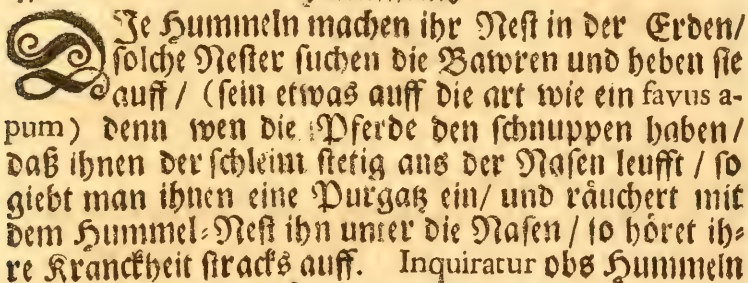 DJe Hummeln machen ihr Nest in der Erden/
solche Nester suchen die Bawren und heben sie
auff / (sein etwas auff die art wie ein favus a-
pum) denn wen die Pferde den schnuppen haben/
daß ihnen der schleim stetig aus der Nasen leufft / so
giebt man ihnen eine Purgatz ein/ und räuchert mit
dem Hummel-Nest ihn unter die Nasen / so höret ih-
re Kranckheit stracks auff. Inquiratur obs Hummeln